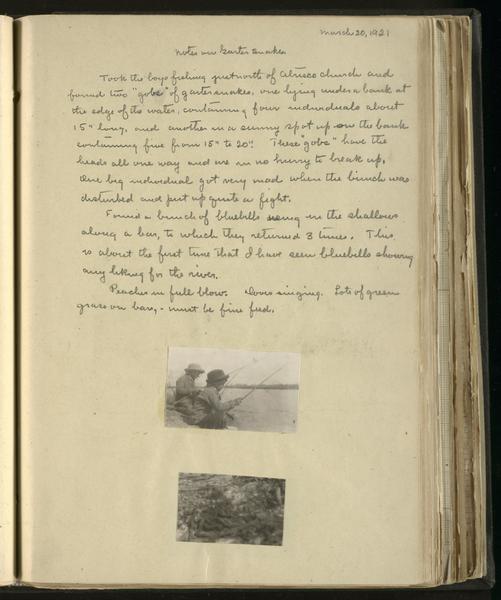 March 20, 1921
Notes on Garter Snakes
Took the boys fishing just north of Atrisco church and
found two "gobs" of garter snakes, one lying under a bank at
the edge of the water, containing four individuals about
15" long, and another in a sunny spot up on the bank
containing five from 15" to 20". These "gobs" have the
heads all one way and are in no hurry to break up.
One big individual got very mad when the bunch was
disturbed and put up quite a fight.
Found a bunch of bluebills using in the shallows
along a bar, to which they returned 3 times. This
is about the first time that I have seen bluebills showing
any liking for the river.
Peaches in full blow. Doves singing. Lots of green
grass on bars, - must be fine feed.